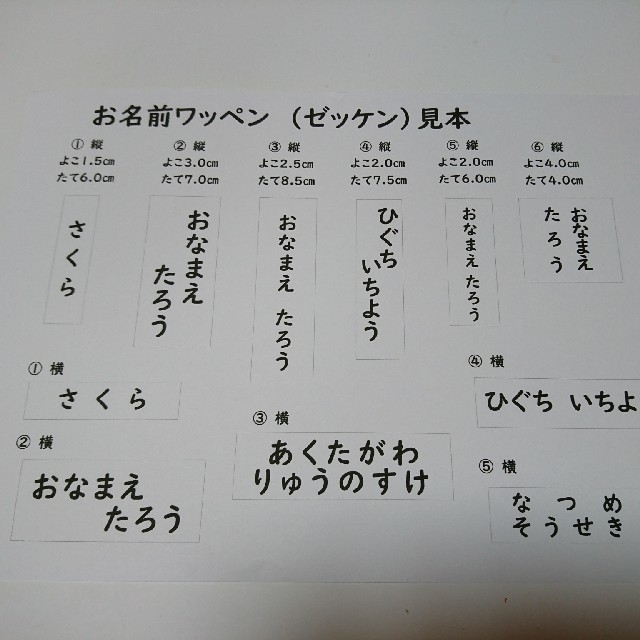 お名前ワッペン (ゼッケン)見本
① 縦
よこ1.5cm
たて6.0cm
さくら
② 縦
よこ3.0cm
たて7.0cm
おなまえ
たろう
③ 縦
よこ2.5cm
たて8.5cm
おなまえ たろう
④ 縦
よこ2.0cm
たて7.5cm
ひぐち いちよう
⑤ 縦
よこ2.0cm
たて6.0cm
おなまえ たろう
⑥ 縦
よこ4.0cm
たて4.0cm
おなまえ
たろう
① 横
さくら
② 横
おなまえ
たろう
③ 横
あくたがわ
りゅうのすけ
④ 横
ひぐち いちよ
⑤ 横
なつめ
そうせき